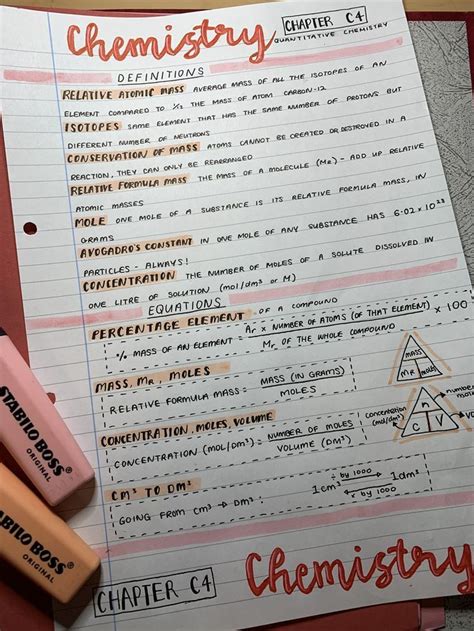 Chemistry
CHAPTER C4
QUANTITATIVE CHEMISTRY
DEFINITIONS
RELATIVE ATOMIC MASS AVERAGE MASS OF ALL THE ISOTOPES OF AN
ELEMENT COMPARED TO 1/12 THE MASS OF ATOM CARBON-12
ISOTOPES SAME ELEMENT THAT HAS THE SAME NUMBER OF PROTONS BUT
DIFFERENT NUMBER OF NEUTRONS
CONSERVATION OF MASS ATOMS CANNOT BE CREATED OR DESTROYED IN A
REACTION, THEY CAN ONLY BE REARRANGED
RELATIVE FORMULA MASS THE MASS OF A MOLECULE (Mr) - ADD UP RELATIVE
ATOMIC MASSES
MOLE ONE MOLE OF A SUBSTANCE IS ITS RELATIVE FORMULA MASS, IN
GRAMS
AVOGADRO'S CONSTANT IN ONE MOLE OF ANY SUBSTANCE HAS 6.02 x 10²³
PARTICLES - ALWAYS!
CONCENTRATION THE NUMBER OF MOLES OF A SOLUTE DISSOLVED IN
ONE LITRE OF SOLUTION (mol/dm³ or M)
EQUATIONS
PERCENTAGE ELEMENT OF A COMPOUND
% MASS OF AN ELEMENT = Ar x NUMBER OF ATOMS (OF THAT ELEMENT) x 100
Mr OF THE WHOLE COMPOUND
MASS, Mr, MOLES
RELATIVE FORMULA MASS = MASS (IN GRAMS)
MOLES
MASS
Mr moles
CONCENTRATION, MOLES, VOLUME
CONCENTRATION (MOL/DM³) = NUMBER OF MOLES
VOLUME (DM³)
concentration
(mol/dm³)
n
C V
number
CM³ TO DM³
GOING FROM CM³ → DM³:
÷ by 1000
1cm³ 1dm³
x by 1000
Chemistry
CHAPTER C4
STABILO BOSS
ORIGINAL
STABILO BOSS
ORIGINAL